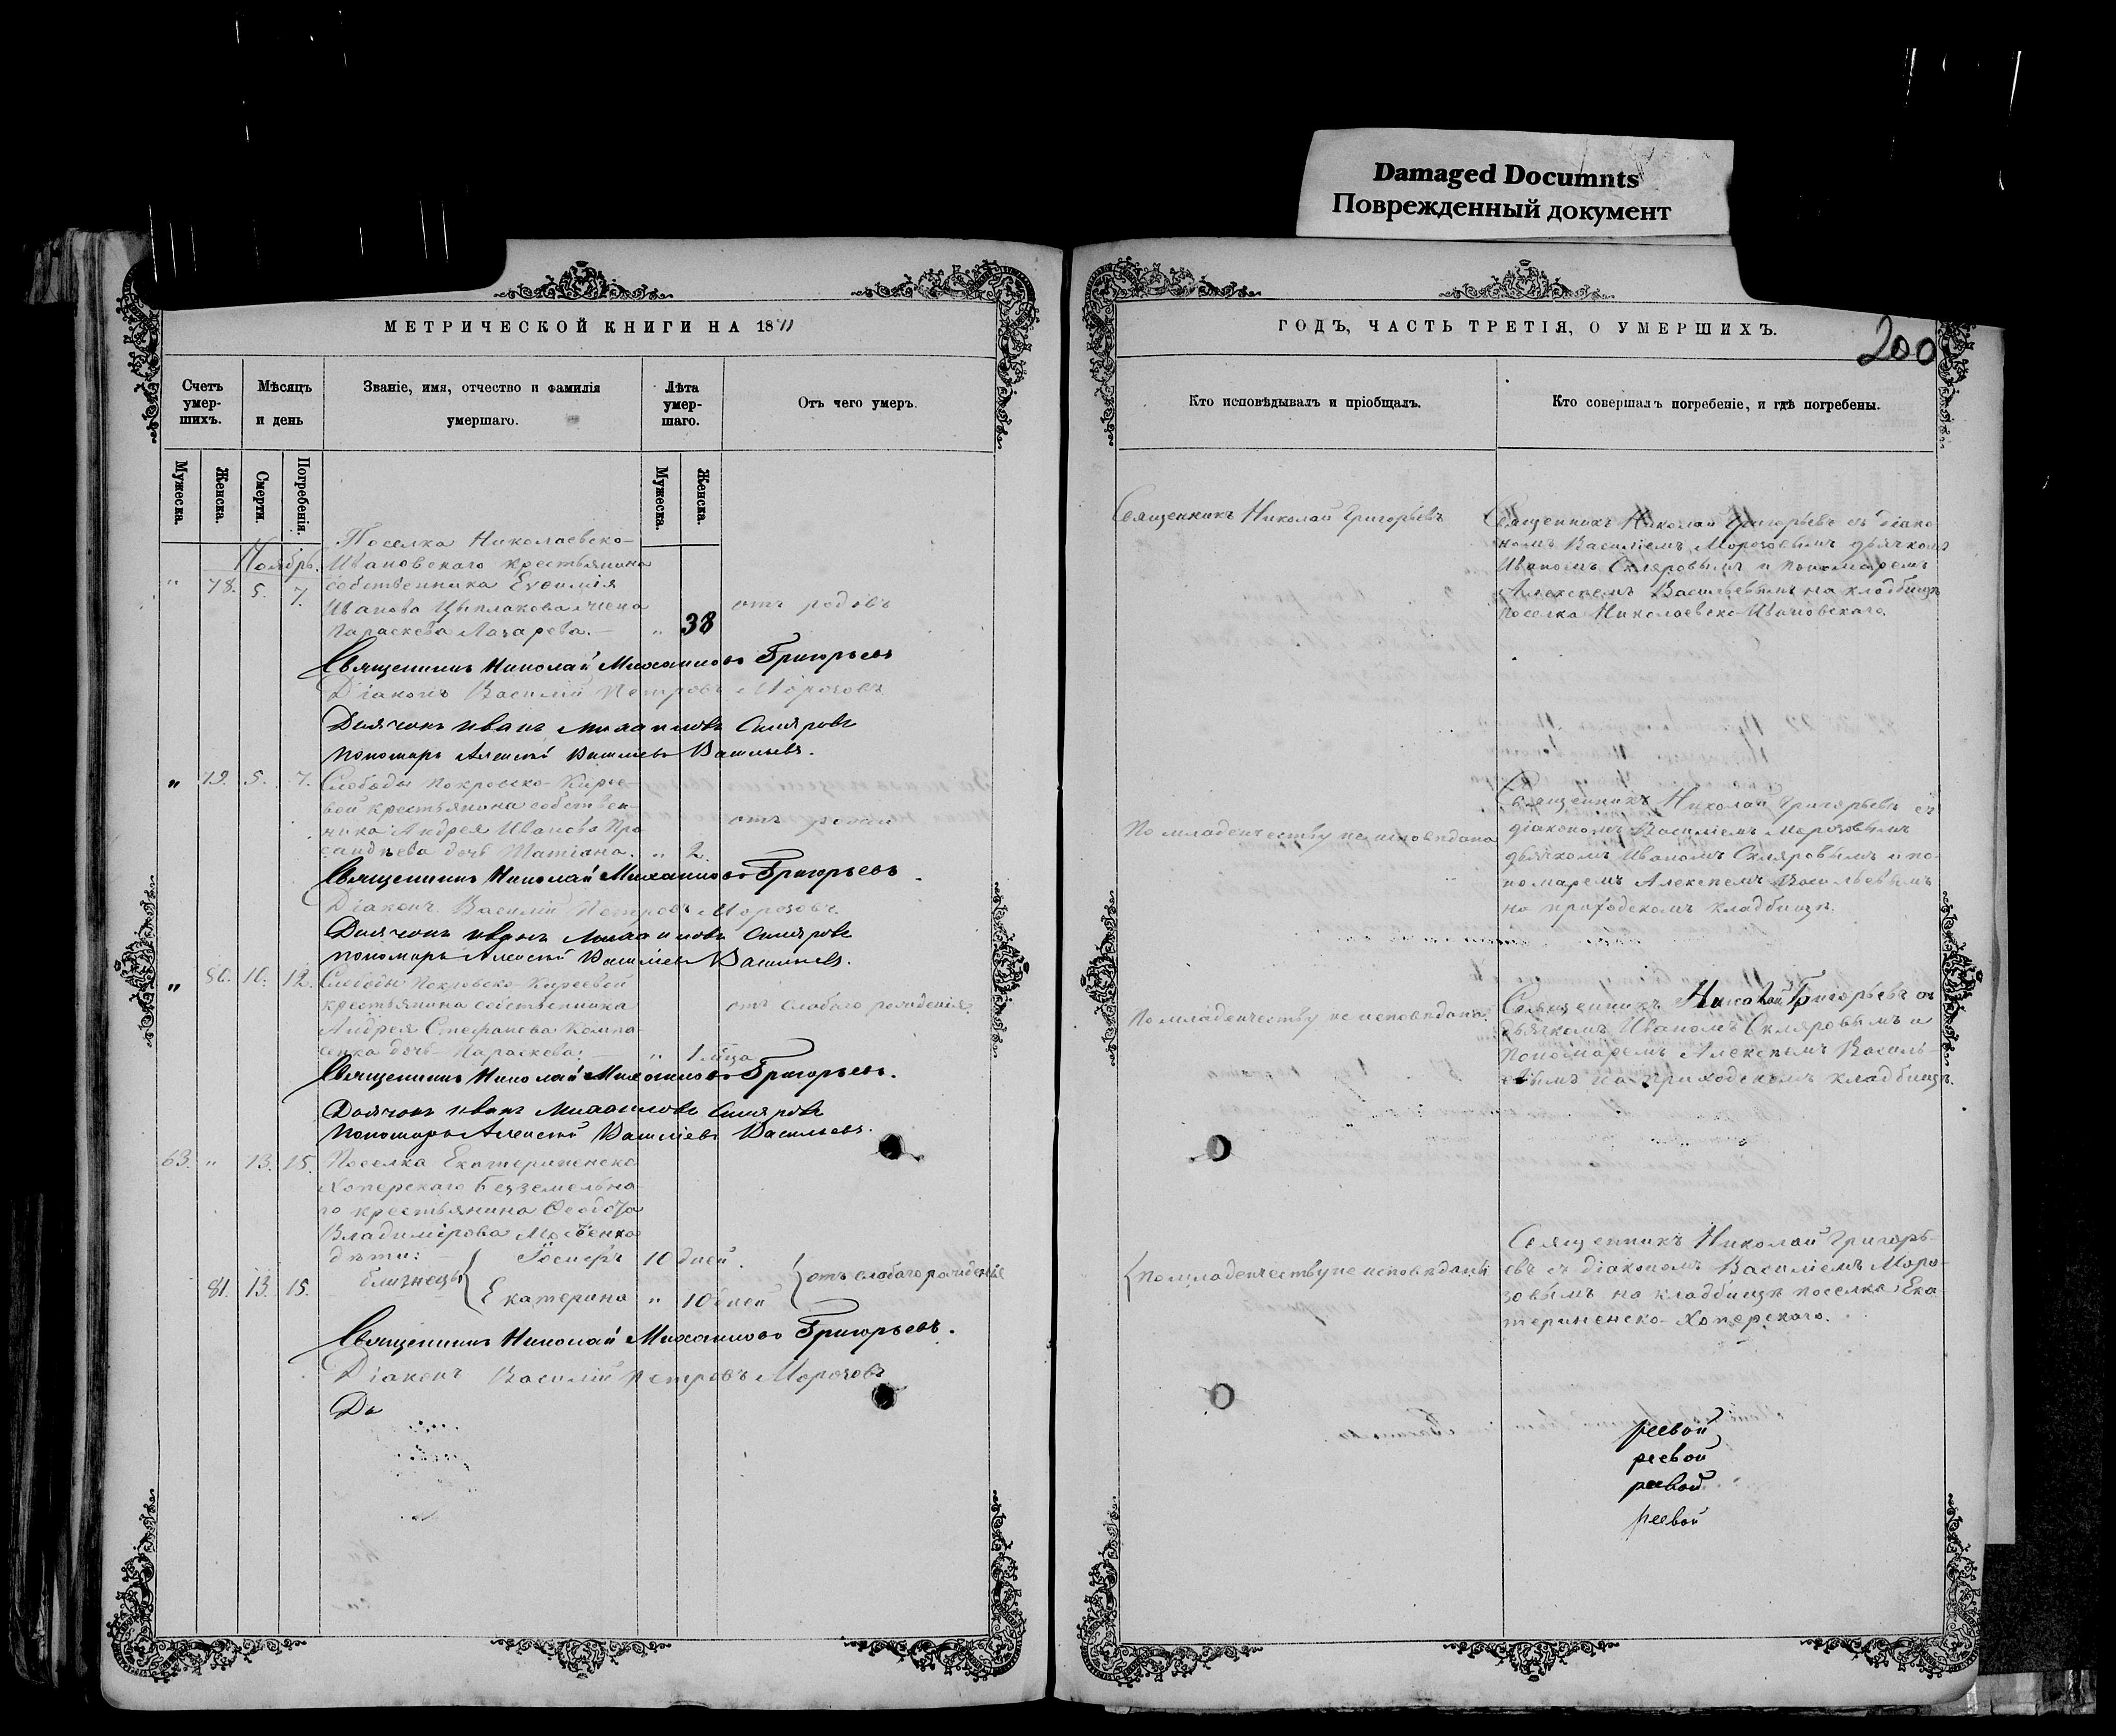 Damaged Documnts
Поврежденный документ
МЕТРИЧЕСКОЙ КНИГИ НА 1871
Счетъ умер-шихъ.
Мѣсяцъ и день
Званіе, имя, отчество и фамилія умершаго.
Лѣта умер-шаго.
Отъ чего умеръ.
Мужеска.
Женска.
Смерти.
Погребенія.
Мужеска.
Женска.
Ноябрь.
Поселка Николаевско-
Ивановскаго крестьянина
" 78. 5. 7. собственника Евѳимія
Иванова жена отъ родовъ
Параскева Лазарева. " 38
Священникъ Николай Михаиловъ Григорьевъ
Діаконъ Василій Петровъ Морозовъ
Дьячокъ Иванъ Михаиловъ Скляровъ
Пономарь Алексѣй Василіевъ Васильевъ.
" 79. 5. 7. Слободы Покровско-Кирѣе-
вой крестьянина собствен-
ника Андрея Иванова
дочь Татіана. " 2.
Священникъ Николай Михаиловъ Григорьевъ.
Діаконъ Василій Петровъ Морозовъ.
Дьячокъ Иванъ Михаиловъ Скляровъ
Пономарь Алексѣй Василіевъ Васильевъ.
" 80. 10. 12. Слободы Покровско-Кирѣевой
крестьянина собственника отъ слабаго рожденія.
Андрея Стефанова Компа-
енка дочь Параскева. " 1 мца
Священникъ Николай Михаиловъ Григорьевъ.
Дьячокъ Иванъ Михаиловъ Скляровъ
Пономарь Алексѣй Василіевъ Васильевъ.
63. " 13. 15. Поселка Екатериненско
Хоперскаго безземельна-
го крестьянина
Владимірова
дѣти: Іосифъ 10 дней.
близнецы отъ слабаго рожденія
81. 13. 15. Екатерина " 10 дней
Священникъ Николай Михаиловъ Григорьевъ.
Діаконъ Василій Петровъ Морозовъ
Дь
ГОДЪ, ЧАСТЬ ТРЕТІЯ, О УМЕРШИХЪ.
200
Кто исповѣдывалъ и пріобщалъ.
Кто совершалъ погребеніе, и гдѣ погребены.
Священникъ Николай Григорьевъ
Священникъ Николай Григорьевъ съ діако-
номъ Василіемъ Морозовымъ дьячкомъ
Иваномъ Скляровымъ и пономаремъ
Алексѣемъ Васильевымъ на кладбищѣ
поселка Николаевско-Ивановскаго.
По младенчеству не исповѣдана
Священникъ Николай Григорьевъ съ
діакономъ Василіемъ Морозовымъ
дьячкомъ Иваномъ Скляровымъ и по-
номаремъ Алексѣемъ Васильевымъ
на приходскомъ кладбищѣ.
По младенчеству не исповѣдана.
Священникъ Николай Григорьевъ съ
дьячкомъ Иваномъ Скляровымъ и
Пономаремъ Алексѣемъ Василь-
евымъ на приходскомъ кладбищѣ.
По младенчеству не исповѣданы
Священникъ Николай Григорь-
евъ съ діакономъ Василіемъ Моро-
зовымъ на кладбищѣ поселка Ека-
териненско-Хоперскаго.
реевой
реевой
реевой
реевой